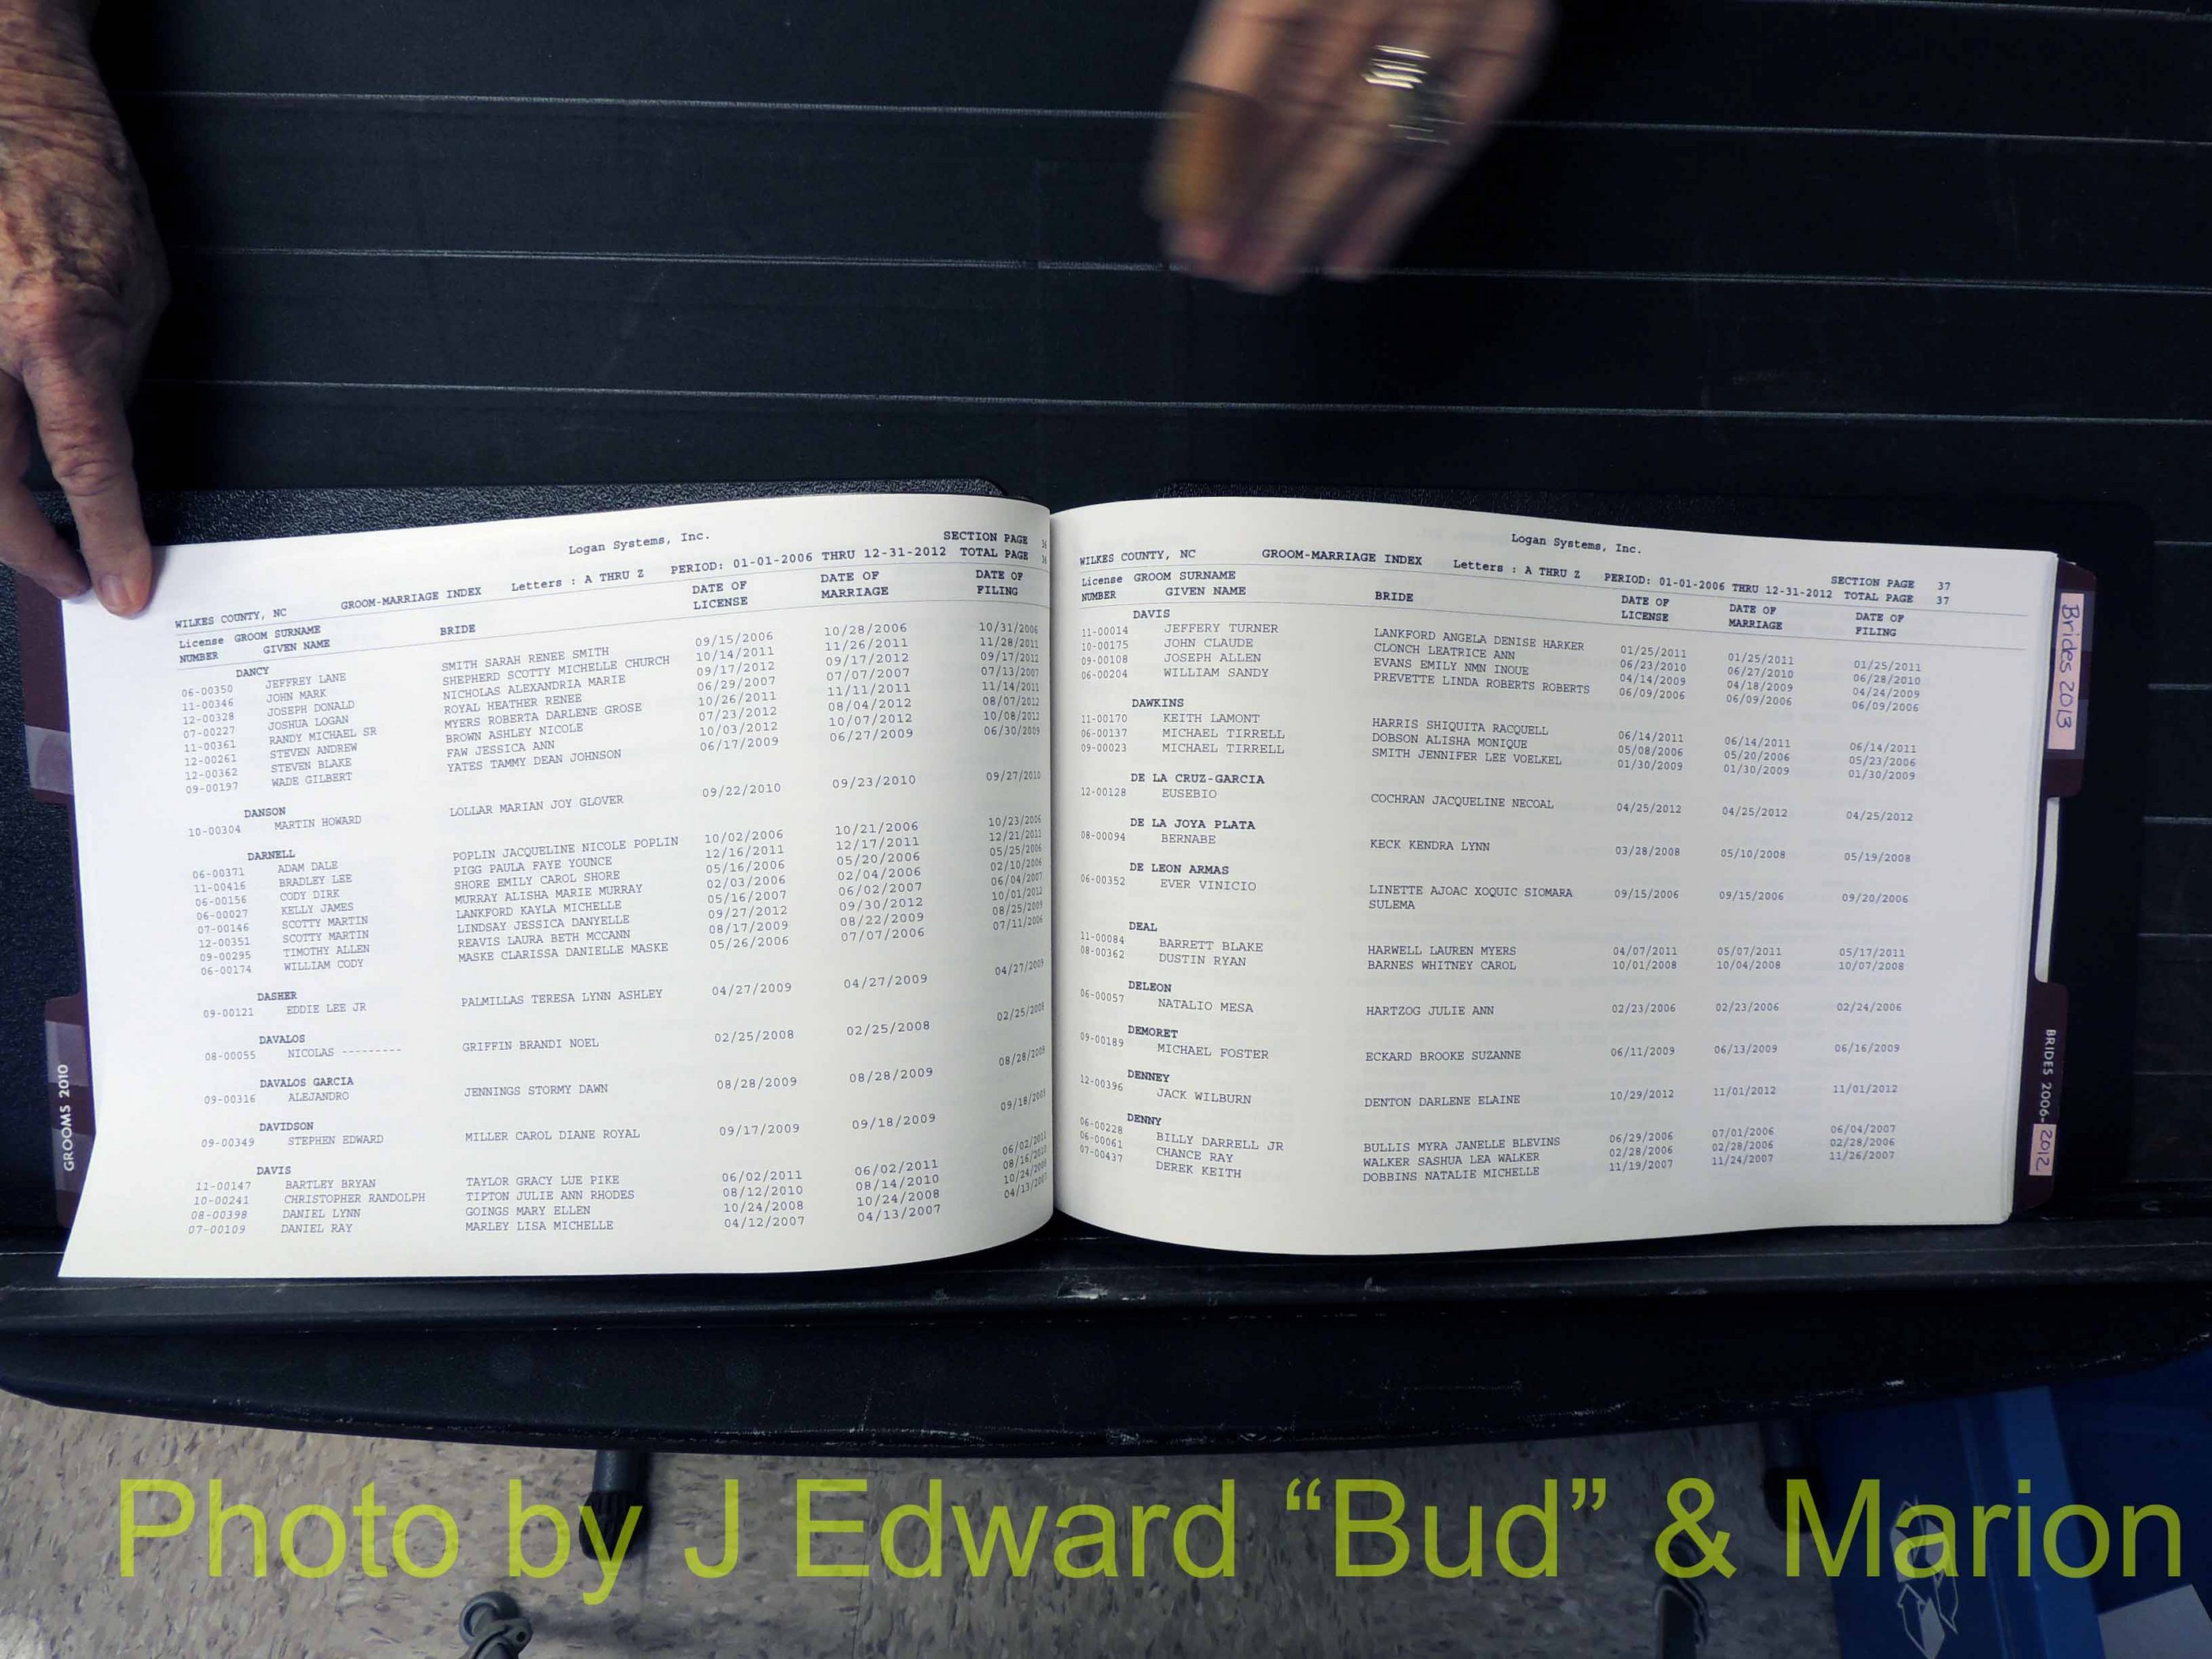 Logan Systems, Inc.
SECTION PAGE 36
WILKES COUNTY, NC GROOM-MARRIAGE INDEX Letters : A THRU Z PERIOD: 01-01-2006 THRU 12-31-2012 TOTAL PAGE 36
License GROOM SURNAME DATE OF DATE OF DATE OF
NUMBER GIVEN NAME BRIDE LICENSE MARRIAGE FILING
DANCY
06-00350 JEFFREY LANE SMITH SARAH RENEE SMITH 09/15/2006 10/28/2006 10/31/2006
11-00346 JOHN MARK SHEPHERD SCOTTY MICHELLE CHURCH 10/14/2011 11/26/2011 11/28/2011
12-00328 JOSEPH DONALD NICHOLAS ALEXANDRIA MARIE 09/17/2012 09/17/2012 09/17/2012
07-00227 JOSHUA LOGAN ROYAL HEATHER RENEE 06/29/2007 07/07/2007 07/13/2007
11-00361 RANDY MICHAEL SR MYERS ROBERTA DARLENE GROSE 10/26/2011 11/11/2011 11/14/2011
12-00261 STEVEN ANDREW BROWN ASHLEY NICOLE 07/23/2012 08/04/2012 08/07/2012
12-00362 STEVEN BLAKE FAW JESSICA ANN 10/03/2012 10/07/2012 10/08/2012
09-00197 WADE GILBERT YATES TAMMY DEAN JOHNSON 06/17/2009 06/27/2009 06/30/2009
DANSON
10-00304 MARTIN HOWARD LOLLAR MARIAN JOY GLOVER 09/22/2010 09/23/2010 09/27/2010
DARNELL
06-00371 ADAM DALE POPLIN JACQUELINE NICOLE POPLIN 10/02/2006 10/21/2006 10/23/2006
11-00416 BRADLEY LEE PIGG PAULA FAYE YOUNCE 12/16/2011 12/17/2011 12/21/2011
06-00156 CODY DIRK SHORE EMILY CAROL SHORE 05/16/2006 05/20/2006 05/25/2006
06-00027 KELLY JAMES MURRAY ALISHA MARIE MURRAY 02/03/2006 02/04/2006 02/10/2006
07-00146 SCOTTY MARTIN LANKFORD KAYLA MICHELLE 05/16/2007 06/02/2007 06/04/2007
12-00351 SCOTTY MARTIN LINDSAY JESSICA DANYELLE 09/27/2012 09/30/2012 10/01/2012
09-00295 TIMOTHY ALLEN REAVIS LAURA BETH MCCANN 08/17/2009 08/22/2009 08/25/2009
06-00174 WILLIAM CODY MASKE CLARISSA DANIELLE MASKE 05/26/2006 07/07/2006 07/11/2006
DASHER
09-00121 EDDIE LEE JR PALMILLAS TERESA LYNN ASHLEY 04/27/2009 04/27/2009 04/27/2009
DAVALOS
08-00055 NICOLAS --------- GRIFFIN BRANDI NOEL 02/25/2008 02/25/2008 02/25/2008
DAVALOS GARCIA
09-00316 ALEJANDRO JENNINGS STORMY DAWN 08/28/2009 08/28/2009 08/28/2009
DAVIDSON
09-00349 STEPHEN EDWARD MILLER CAROL DIANE ROYAL 09/17/2009 09/18/2009 09/18/2009
DAVIS
11-00147 BARTLEY BRYAN TAYLOR GRACY LUE PIKE 06/02/2011 06/02/2011 06/02/2011
10-00241 CHRISTOPHER RANDOLPH TIPTON JULIE ANN RHODES 08/12/2010 08/14/2010 08/16/2010
08-00398 DANIEL LYNN GOINGS MARY ELLEN 10/24/2008 10/24/2008
07-00109 DANIEL RAY MARLEY LISA MICHELLE 04/12/2007 04/13/2007 04/13/2007
GROOMS 2010
Logan Systems, Inc.
SECTION PAGE 37
WILKES COUNTY, NC GROOM-MARRIAGE INDEX Letters : A THRU Z PERIOD: 01-01-2006 THRU 12-31-2012 TOTAL PAGE 37
License GROOM SURNAME DATE OF DATE OF DATE OF
NUMBER GIVEN NAME BRIDE LICENSE MARRIAGE FILING
DAVIS
11-00014 JEFFERY TURNER LANKFORD ANGELA DENISE HARKER 01/25/2011 01/25/2011 01/25/2011
10-00175 JOHN CLAUDE CLONCH LEATRICE ANN 06/23/2010 06/27/2010 06/28/2010
09-00108 JOSEPH ALLEN EVANS EMILY NMN INOUE 04/14/2009 04/18/2009 04/24/2009
06-00204 WILLIAM SANDY PREVETTE LINDA ROBERTS ROBERTS 06/09/2006 06/09/2006 06/09/2006
DAWKINS
11-00170 KEITH LAMONT HARRIS SHIQUITA RACQUELL 06/14/2011 06/14/2011 06/14/2011
06-00137 MICHAEL TIRRELL DOBSON ALISHA MONIQUE 05/08/2006 05/20/2006 05/23/2006
09-00023 MICHAEL TIRRELL SMITH JENNIFER LEE VOELKEL 01/30/2009 01/30/2009 01/30/2009
DE LA CRUZ-GARCIA
12-00128 EUSEBIO COCHRAN JACQUELINE NECOAL 04/25/2012 04/25/2012 04/25/2012
DE LA JOYA PLATA
08-00094 BERNABE KECK KENDRA LYNN 03/28/2008 05/10/2008 05/19/2008
DE LEON ARMAS
06-00352 EVER VINICIO LINETTE AJOAC XOQUIC SIOMARA 09/15/2006 09/15/2006 09/20/2006
SULEMA
DEAL
11-00084 BARRETT BLAKE HARWELL LAUREN MYERS 04/07/2011 05/07/2011 05/17/2011
08-00362 DUSTIN RYAN BARNES WHITNEY CAROL 10/01/2008 10/04/2008 10/07/2008
DELEON
06-00057 NATALIO MESA HARTZOG JULIE ANN 02/23/2006 02/23/2006 02/24/2006
DEMORET
09-00189 MICHAEL FOSTER ECKARD BROOKE SUZANNE 06/11/2009 06/13/2009 06/16/2009
DENNEY
12-00396 JACK WILBURN DENTON DARLENE ELAINE 10/29/2012 11/01/2012 11/01/2012
DENNY
06-00228 BILLY DARRELL JR BULLIS MYRA JANELLE BLEVINS 06/29/2006 07/01/2006 06/04/2007
06-00061 CHANCE RAY WALKER SASHUA LEA WALKER 02/28/2006 02/28/2006 02/28/2006
07-00437 DEREK KEITH DOBBINS NATALIE MICHELLE 11/19/2007 11/24/2007 11/26/2007
Brides 2013
BRIDES 2006-2012
Photo by J Edward “Bud” & Marion